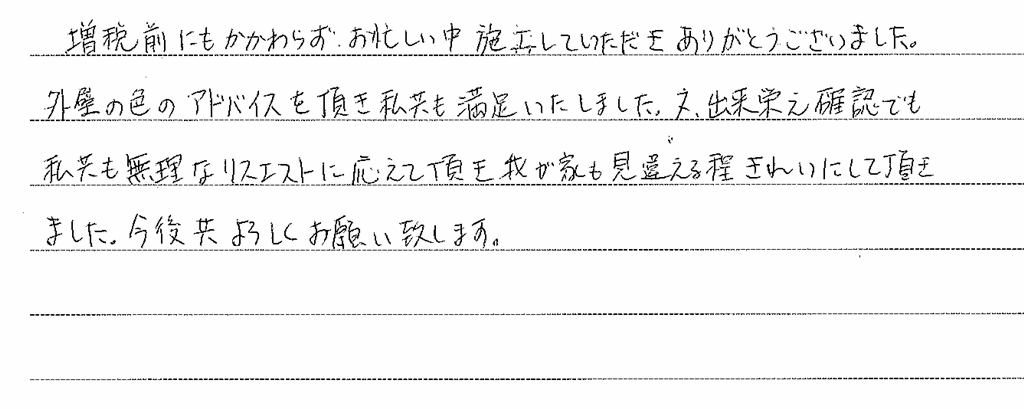 増税前にもかかわらず、お忙しい中施工していただきありがとうございました。
外壁の色のアドバイスを頂き私共も満足いたしました。又、出来栄え確認でも
私共も無理なリクエストに応えて頂き我が家も見違える程きれいにして頂き
ました。今後共よろしくお願い致します。